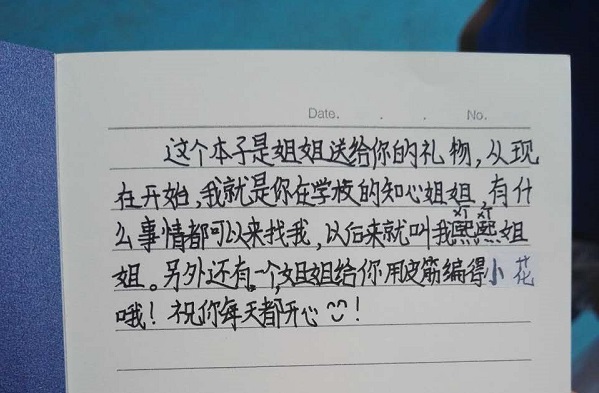 Date. . . No.
这个本子是姐姐送给你的礼物,从现
在开始,我就是你在学校的知心姐姐,有什
xī xī
么事情都可以来找我,以后来就叫我熙熙姐
姐。另外还有一个,姐姐给你用皮筋编得小花
哦!祝你每天都开心!